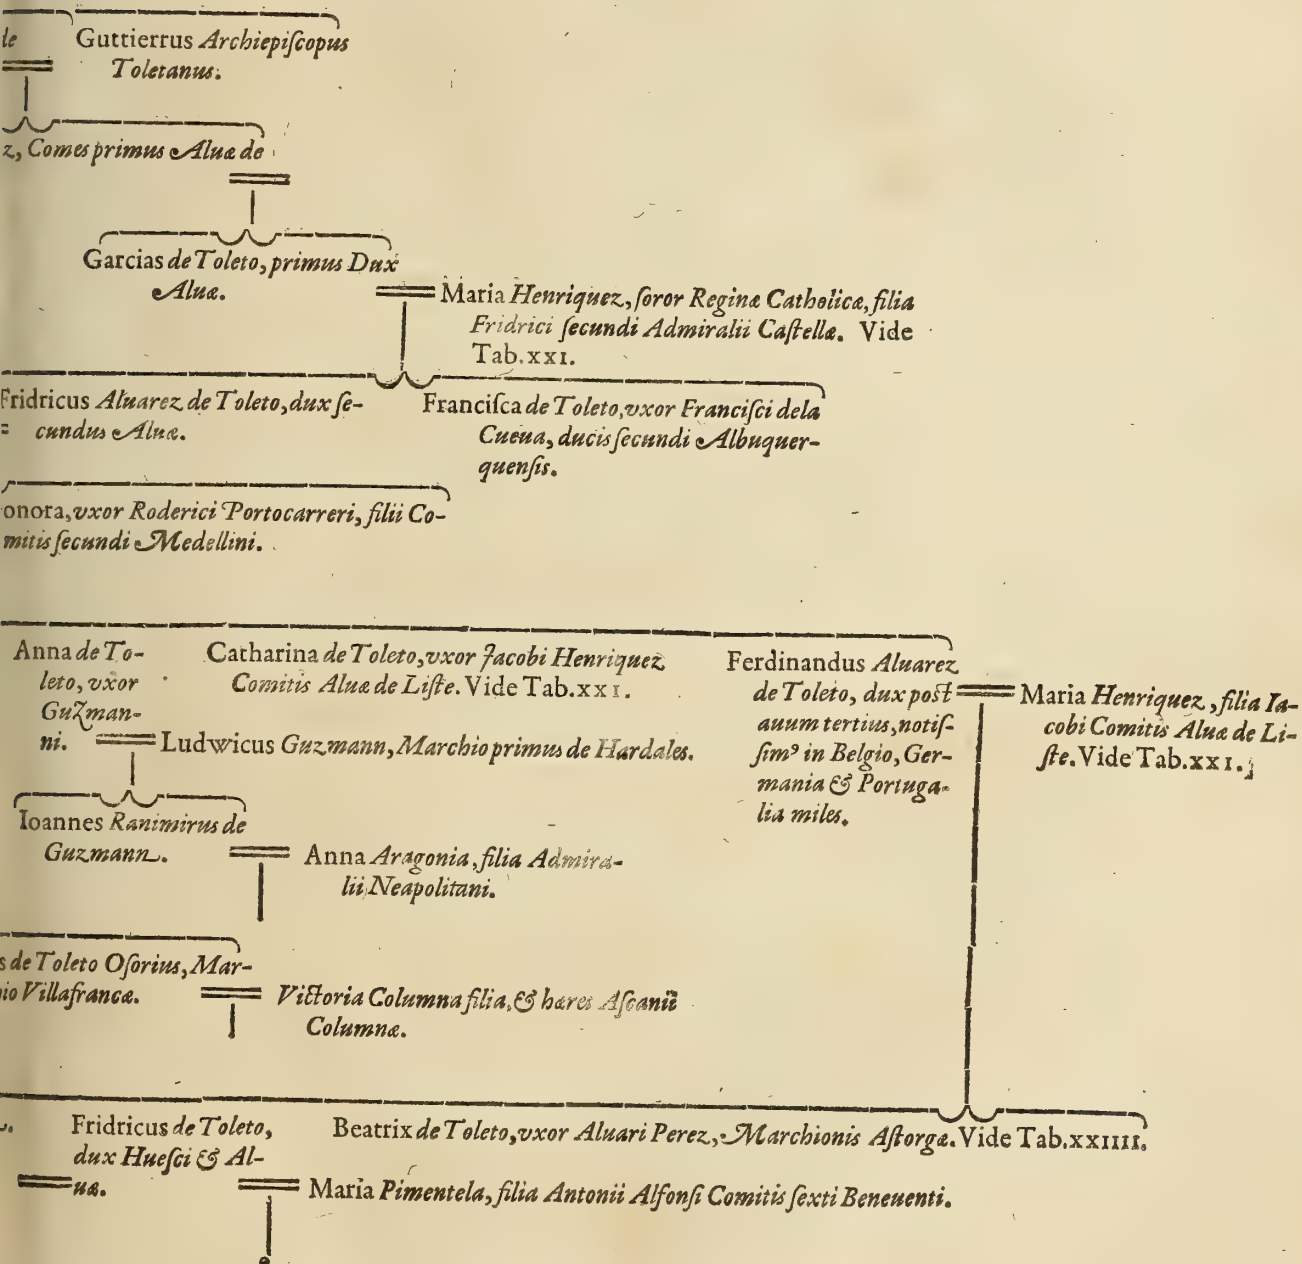 le
Guttierrus Archiepiſcopus
Toletanus.
z, Comes primus Aluæ de
Garcias de Toleto, primus Dux
Aluæ.
Maria Henriquez, ſoror Reginæ Catholicæ, filia
Fridrici ſecundi Admiralii Caſtellæ. Vide
Tab. XXI.
Fridricus Aluarez de Toleto, dux ſe-
cundus Aluæ.
Franciſca de Toleto, vxor Franciſci dela
Cueua, ducis ſecundi Albuquer-
quenſis.
onora, vxor Roderici Portocarreri, filii Co-
mitis ſecundi Medellini.
Anna de To-
leto, vxor
Guzman-
ni.
Catharina de Toleto, vxor Jacobi Henriquez
Comitis Aluæ de Liſte. Vide Tab. XXI.
Ludwicus Guzmann, Marchio primus de Hardales.
Ferdinandus Aluarez
de Toleto, dux post
auum tertius, notiſ-
ſimꝰ in Belgio, Ger-
mania & Portuga-
lia miles.
Maria Henriquez, filia Ia-
cobi Comitis Aluæ de Li-
ſte. Vide Tab. XXI.
Ioannes Ranimirus de
Guzmann.
Anna Aragonia, filia Admira-
lii Neapolitani.
s de Toleto Oſorius, Mar-
io Villafrancæ.
Victoria Columna filia, & hæres Aſcanii
Columnæ.
Fridricus de Toleto,
dux Hueſci & Al-
uæ.
Beatrix de Toleto, vxor Aluari Perez, Marchionis Aſtorgæ. Vide Tab. XXIIII.
Maria Pimentela, filia Antonii Alfonſi Comitis ſexti Beneuenti.